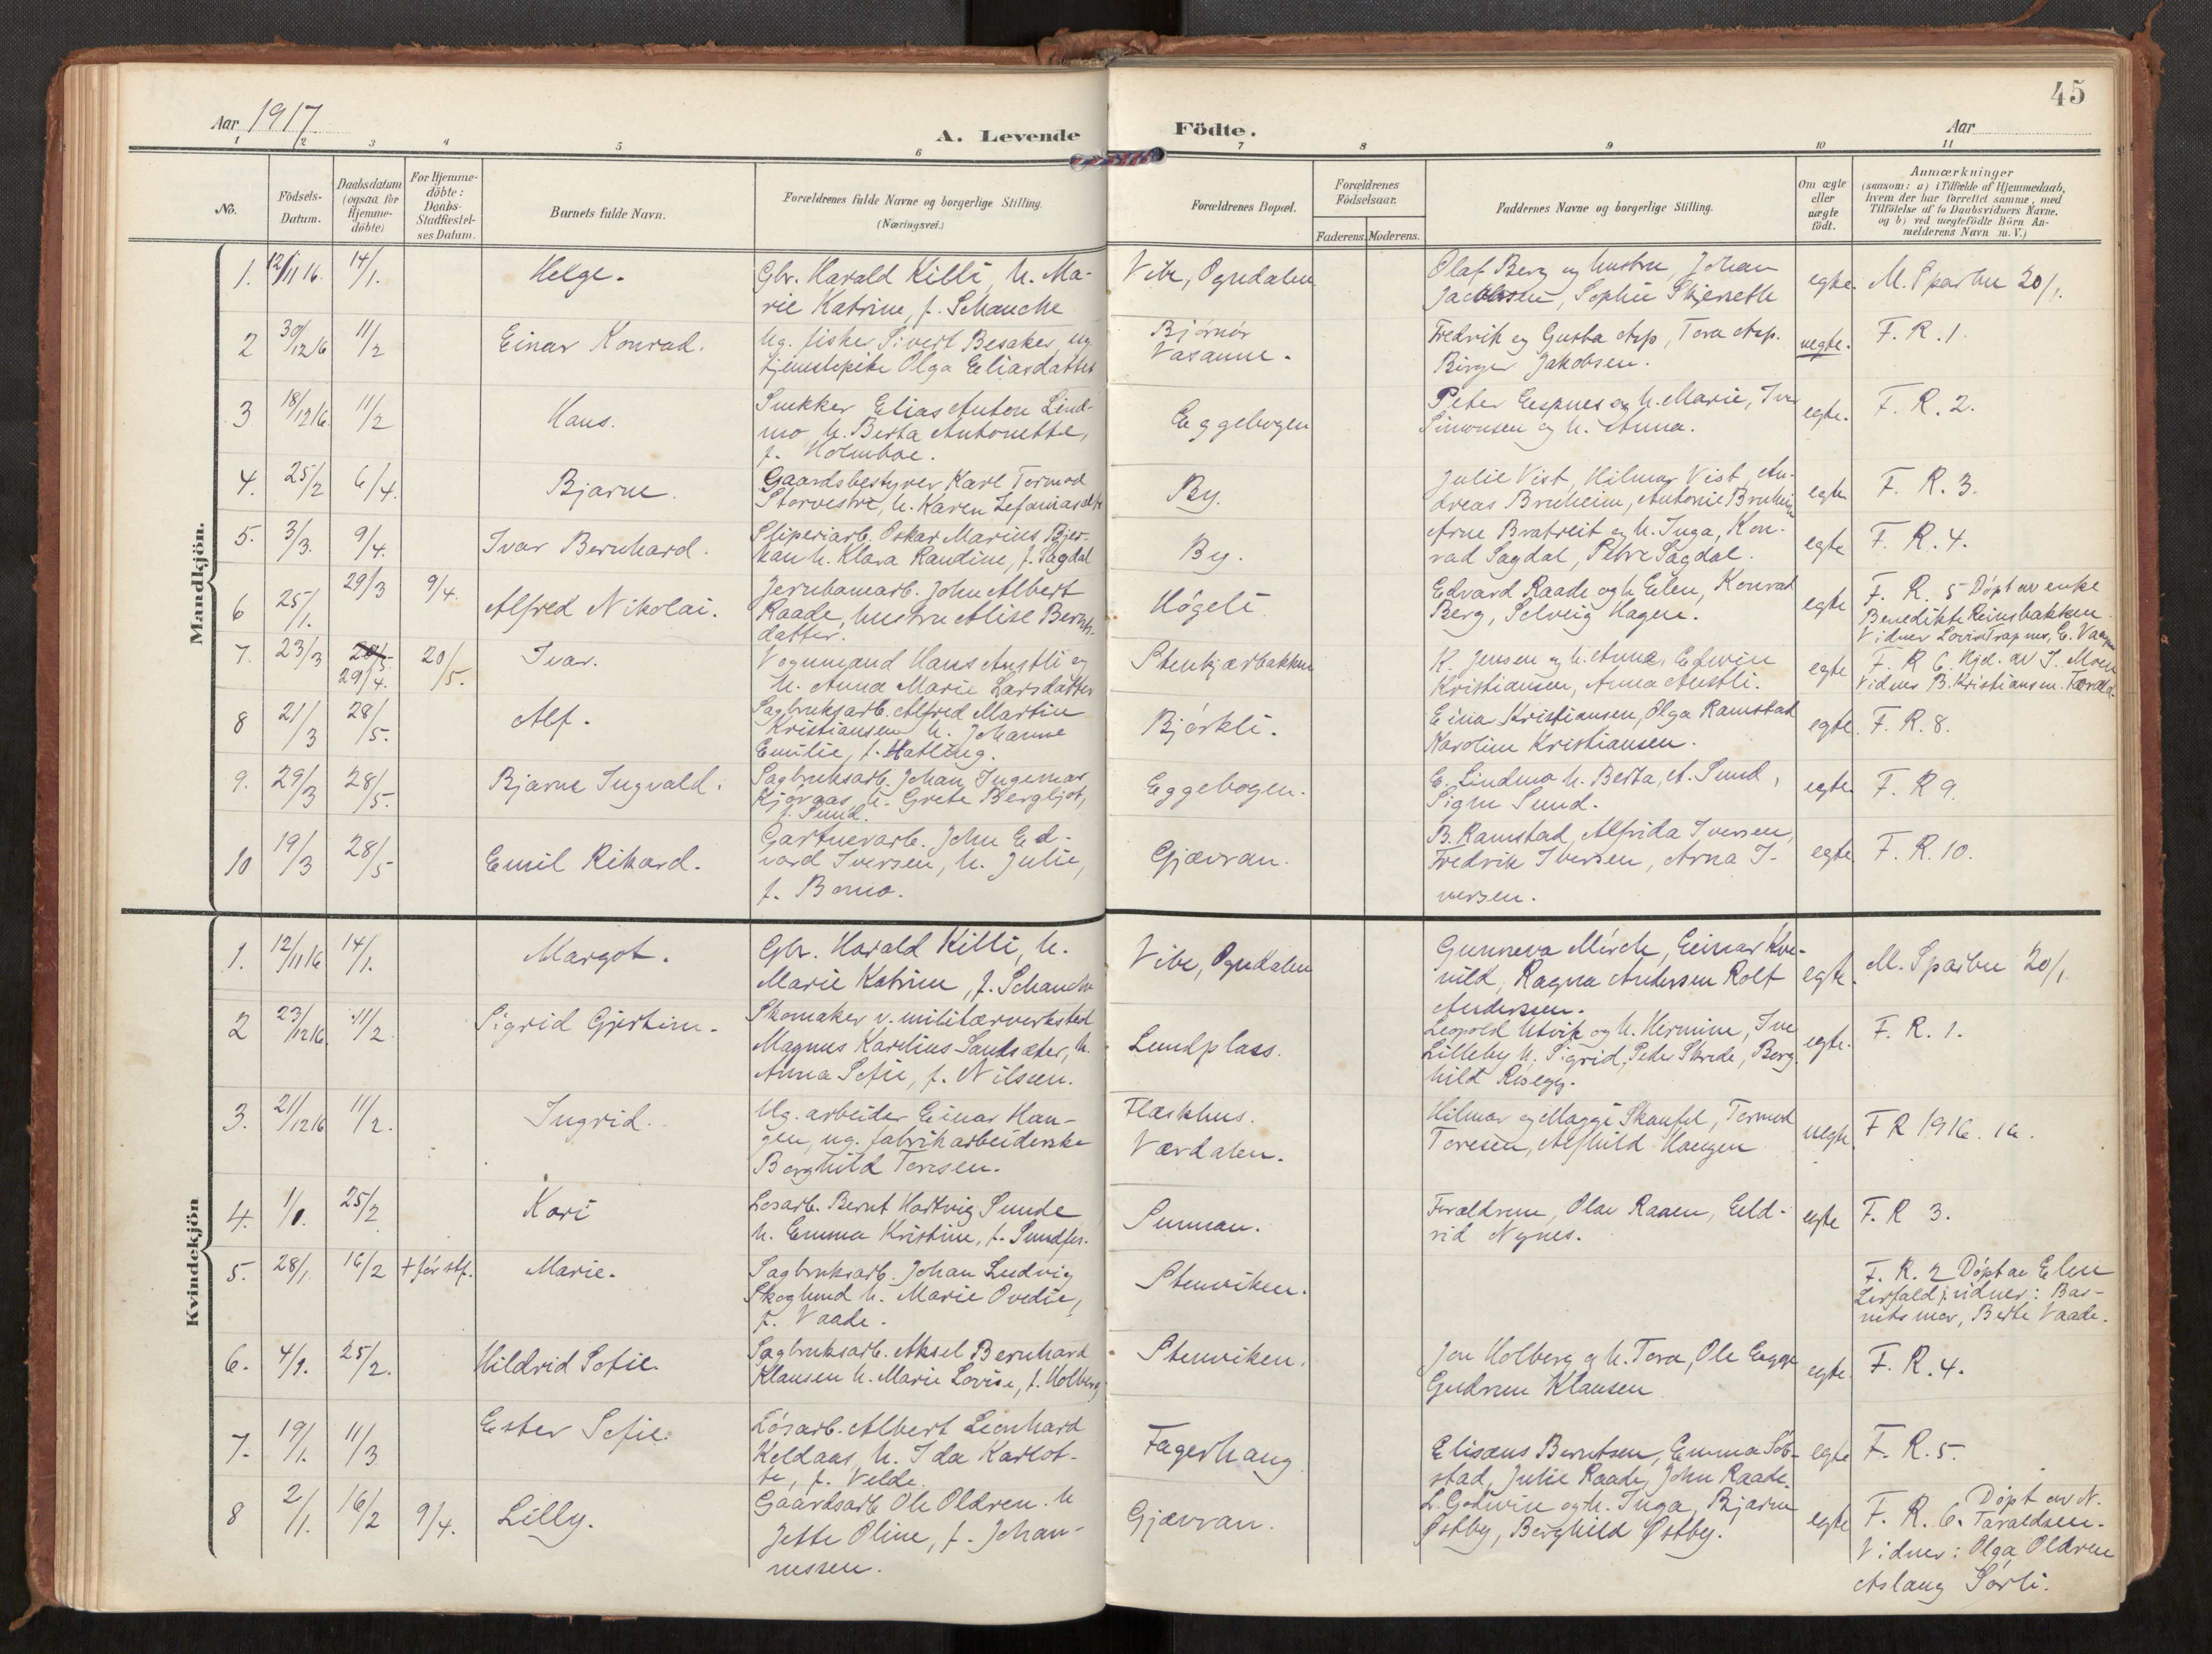 45
Aar 1917.
A. Levende Födte.
Aar
1 2 3 4 5 6 7 8 9 10 11
No.
Födsels-Datum.
Daabsdatum (ogsaa for Hjemme-döbte)
For Hjemme-döbte: Daabs-Stadfæstel-ses Datum.
Barnets fulde Navn.
Forældrenes fulde Navne og borgerlige Stilling.
(Næringsvei.)
Forældrenes Bopæl.
Forældrenes Födselsaar.
Faderens. Moderens.
Faddernes Navne og borgerlige Stilling.
Om ægte eller uægte födt.
Anmærkninger
(saasom: a) i Tilfælde af Hjemmedaab,
hvem der har forrettet samme, med
Tilföielse af to Daabsvidners Navne,
og b) ved uægtefödte Börn An-
melderens Navn m. V.)
Mandkjön.
1. 12/11 16. 14/1. Helge.
Gbr. Harald Killi, h. Ma-
rie Katrine, f. Schanche
Vibe, Ogndalen
Olaf Berg og hustru, Johan
Jacobsen, Sophie Skjerseth
egte. M. Sparbu 20/1.
2 30/12 16 11/2 Einar Konrad.
Ug. fisker Sivert Besaker, ug.
tjenstepike Olga Eliasdatter
Bjørnør
Vasanne.
Fredrik og Gusta Asp, Tora Asp.
Birger Jakobsen.
uegte. F. R. 1.
3 18/12 16. 11/2 Hans.
Snekker Elias Anton Lind-
mo h. Berta Antonette,
f. Holmboe.
Eggebogen
Peter Espnes og h. Marie,
Simonsen og h. Anna.
egte. F. R. 2.
4. 25/2 6/4. Bjarne.
Gaardsbestyrer Karl Tormod
Storvestre, h. Karen
By.
Julie Vist, Hilmar Vist, An-
dreas Bruheim, Antonie Bruheim
egte F. R. 3.
5. 3/3. 9/4. Ivar Bernhard.
Sliperiarb. Oskar Marius Bjer-
kan h. Klara Randine, f. Sagdal
By.
Arne Bratreit og h. Inga, Kon-
rad Sagdal, Petra Sagdal.
egte F. R. 4.
6 25/1. 29/3 9/4. Alfred Nikolai.
Jernbanearb. John Albert
Raade, hustru Alise Bernts-
datter.
Høgeli.
Edvard Raade og h. Elen, Konrad
Berg, Solveig Hagen.
egte F. R. 5 Døpt av enke
Benedikte Reinsbakken
Vidner Lovise Trapnes, E.
7. 23/3 29/4. 20/5. Ivar.
Vognmand Hans Austli og
h. Anna Marie Larsdatter
Stenkjærbakken
K. Jensen og h. Anna, Edvin
Kristiansen, Anna Austli.
egte F. R 6. Hjd. av J. Moen
Vidner B. Kristiansen.
8 21/3 28/5. Alf.
Sagbruksarb. Alfred Martin
Kristiansen h. Johanne
Emilie, f. Hatling.
Bjørkli.
Einar Kristiansen, Olga Ramstad
Karoline Kristiansen.
egte. F. R. 8.
9. 29/3 28/5. Bjarne Ingvald.
Sagbruksarb. Johan Ingemar
Kjøraas, h. Grete Bergljot,
f. Sund.
Eggebogen.
E. Lindmo h. Berta, A. Sund,
Signe Sund.
egte. F. R 9.
10 19/3 28/5 Emil Rikard.
Gartnerarb. John Ed-
vard Iversen, h. Julie,
f. Bomo.
Gjævran.
B. Ramstad, Alfrida Iversen,
Fredrik Iversen, Arna I-
versen.
egte. F. R. 10.
Kvindekjön
1. 12/11 16 14/1. Margot.
Gbr. Harald Killi, h.
Marie Katrine, f. Schanche
Vibe, Ogndalen
Gunneva Mørch, Einar Kve-
nild, Ragna Andersen Rolf
Andersen.
egte. M. Sparbu 20/1.
2 23/12 16. 11/2. Sigrid Gjertine.
Skomaker v. militærverksted
Magnus Karelius Sandsæter, h.
Anna Sofie, f. Nilsen.
Lundplass.
Leopold Utvik og h. Hermine,
Lilleby h. Sigrid, Peder Skrede, Borg-
hild Risegg.
egte. F. R. 1.
3. 21/12 16 11/2. Ingrid.
Ug. arbeider Einar Han-
gen, ug. fabrikarbeiderske
Borghild Toresen.
Flæskhus.
Værdalen.
Hilmar og Maggi Skaufel, Tormod
Toresen, Alfhild Haugen
uegte F R 1916. 16.
4. 1/1. 25/2 Kari
Løsarb. Bernt Hartvig Sunde
h. Emma Kristine, f. Sundfær.
Sunnan.
Forældrene, Olav Raaen, Eld-
rid Nynes.
egte F. R 3.
5. 28/1. 16/2 + før stf. Marie.
Sagbruksarb. Johan Ludvig
Skoglund h. Marie Ovedie,
f. Vaade.
Stenviken.
F. R. 2 Døpt av Elen
Lersfald; vidner: Bar-
nets mor, Berte Vaade.
6. 4/1. 25/2. Hildrid Sofie.
Sagbruksarb. Aksel Bernhard
Klausen h. Marie Lovise, f. Holberg
Stenviken.
Jon Holberg og h. Tora, Ole Egge
Gudrun Klausen
egte. F. R. 4.
7. 19/1. 11/3 Ester Sofie.
Løsarb. Albert Leonhard
Koldaas, h. Ida Karlot-
te, f. Velde.
Fagerhaug.
Elisæus Berntsen, Emma Søb-
stad, Julie Raade, John Raade.
egte F. R. 5.
8 2/1. 16/2 9/4. Lilly.
Gaardsarb Ole Oldren. h
Jette Oline, f. Johan-
nessen.
Gjævran.
L. Godwin og h. Inga, Bjarne
Østby, Borghild Østby.
egte F. R. 6. Døpt av N.
Taraldsen.
Vidner: Olga Oldren
Aslaug Sørli.